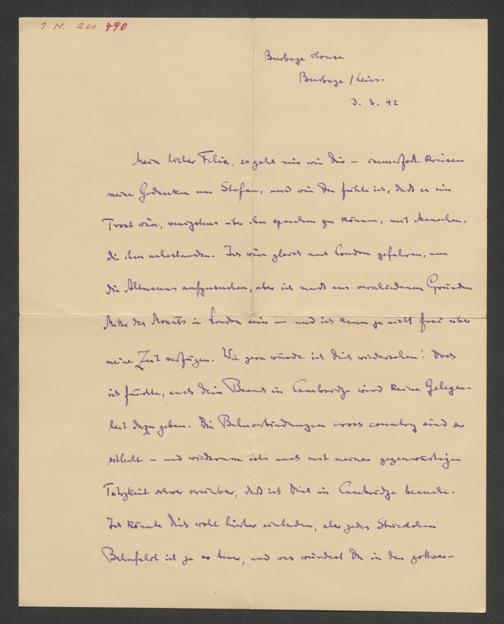 I. N. 200.490
Burbage House
Burbage / Leics.
3. 3. 42
Mein lieber Felix, es geht mir wie Dir – immerfort kreisen
meine Gedanken um Stefan, und wie Du fühle ich, daß es ein
Trost wäre, wenigstens über ihn sprechen zu können, mit Menschen,
die ihm nahestanden. Ich wäre gleich nach London gefahren, um
die Altmanns aufzusuchen, aber ich muß aus verschiedenen Gründen
Mitte des Monats in London sein – und ich kann ja nicht frei über
meine Zeit verfügen. Wie gern würde ich Dich wiedersehen! Doch
ich fürchte, auch Dein Besuch in Cambridge wird keine Gelegen-
heit dazu geben. Die Bahnverbindungen cross country sind so
schlecht – und wiederum ists auch mit meiner gegenwärtigen
Tätigkeit schwer vereinbar, daß ich Dich in Cambridge besuche.
Ich könnte Dich wohl hierher einladen, aber jedes Stückchen
Bahnfahrt ist ja so teuer, und was würdest Du in der gottver-